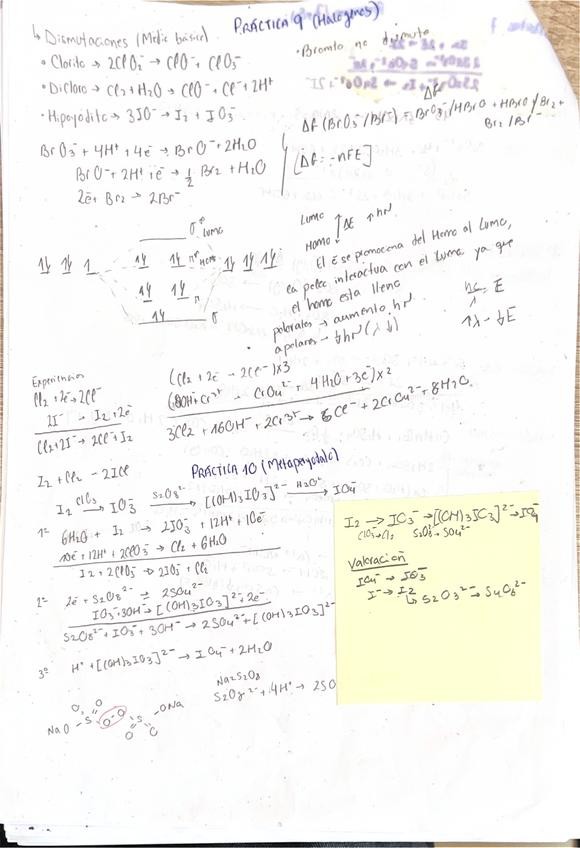 PRÁCTICA 9 (Halógenos)
↳ Dismutaciones (Medio básico)
• Clorito → 2ClO₂⁻ → ClO⁻ + ClO₃⁻
• Dicloro → Cl₂ + H₂O → ClO⁻ + Cl⁻ + 2H⁺
• Hipoyodito → 3IO⁻ → I₂ + IO₃⁻
• Bromato no dismuta
ΔG
ΔG (BrO₃⁻/Br⁻) = BrO₃⁻/HBrO + HBrO/Br₂ +
Br₂/Br⁻
[ΔG = -nFE]
BrO₃⁻ + 4H⁺ + 4e⁻ → BrO⁻ + 2H₂O
BrO⁻ + 2H⁺ + e⁻ → ½ Br₂ + H₂O
2e⁻ + Br₂ → 2Br⁻
σ* Lumo
π* Homo
π
σ
Lumo
Homo
ΔE ↑hν
El e⁻ se promociona del Homo al Lumo,
interactua con el Lumo ya que
el homo esta lleno
polares → aumento hν
apolares → ↓hν (λ ↓)
hc = E
λ
↑λ - ↓E
Experiencias
Cl₂ + 2e⁻ → 2Cl⁻
2I⁻ → I₂ + 2e⁻
Cl₂ + 2I⁻ → 2Cl⁻ + I₂
(Cl₂ + 2e⁻ → 2Cl⁻) x3
(8OH⁻ + Cr³⁺ → CrO₄²⁻ + 4H₂O + 3e⁻) x2
3Cl₂ + 16OH⁻ + 2Cr³⁺ → 6Cl⁻ + 2CrO₄²⁻ + 8H₂O
I₂ + Cl₂ → 2ICl
PRÁCTICA 10 (Metaperyodato)
I₂ ClO₃⁻→ IO₃⁻ S₂O₈²⁻→ [(OH)₃IO₃]²⁻ H₂O→ IO₄⁻
1º 6H₂O + I₂ → 2IO₃⁻ + 12H⁺ + 10e⁻
10e⁻ + 12H⁺ + 2ClO₃⁻ → Cl₂ + 6H₂O
I₂ + 2ClO₃⁻ → 2IO₃⁻ + Cl₂
2º 2e⁻ + S₂O₈²⁻ ⇌ 2SO₄²⁻
IO₃⁻ + 3OH⁻ → [(OH)₃IO₃]²⁻ + 2e⁻
S₂O₈²⁻ + IO₃⁻ + 3OH⁻ → 2SO₄²⁻ + [(OH)₃IO₃]²⁻
3º H⁺ + [(OH)₃IO₃]²⁻ → IO₄⁻ + 2H₂O
Na₂S₂O₈
S₂O₈²⁻ + 4H⁺ → 2SO
NaO - S - O - O - S - ONa
O O O O
I₂ → IO₃⁻ → [(OH)₃IO₃]²⁻ → IO₄⁻
ClO₃⁻→Cl₂ S₂O₈²⁻→SO₄²⁻
Valoración
IO₄⁻ → IO₃⁻
I⁻ → I₂
↳ S₂O₃²⁻ → S₄O₆²⁻